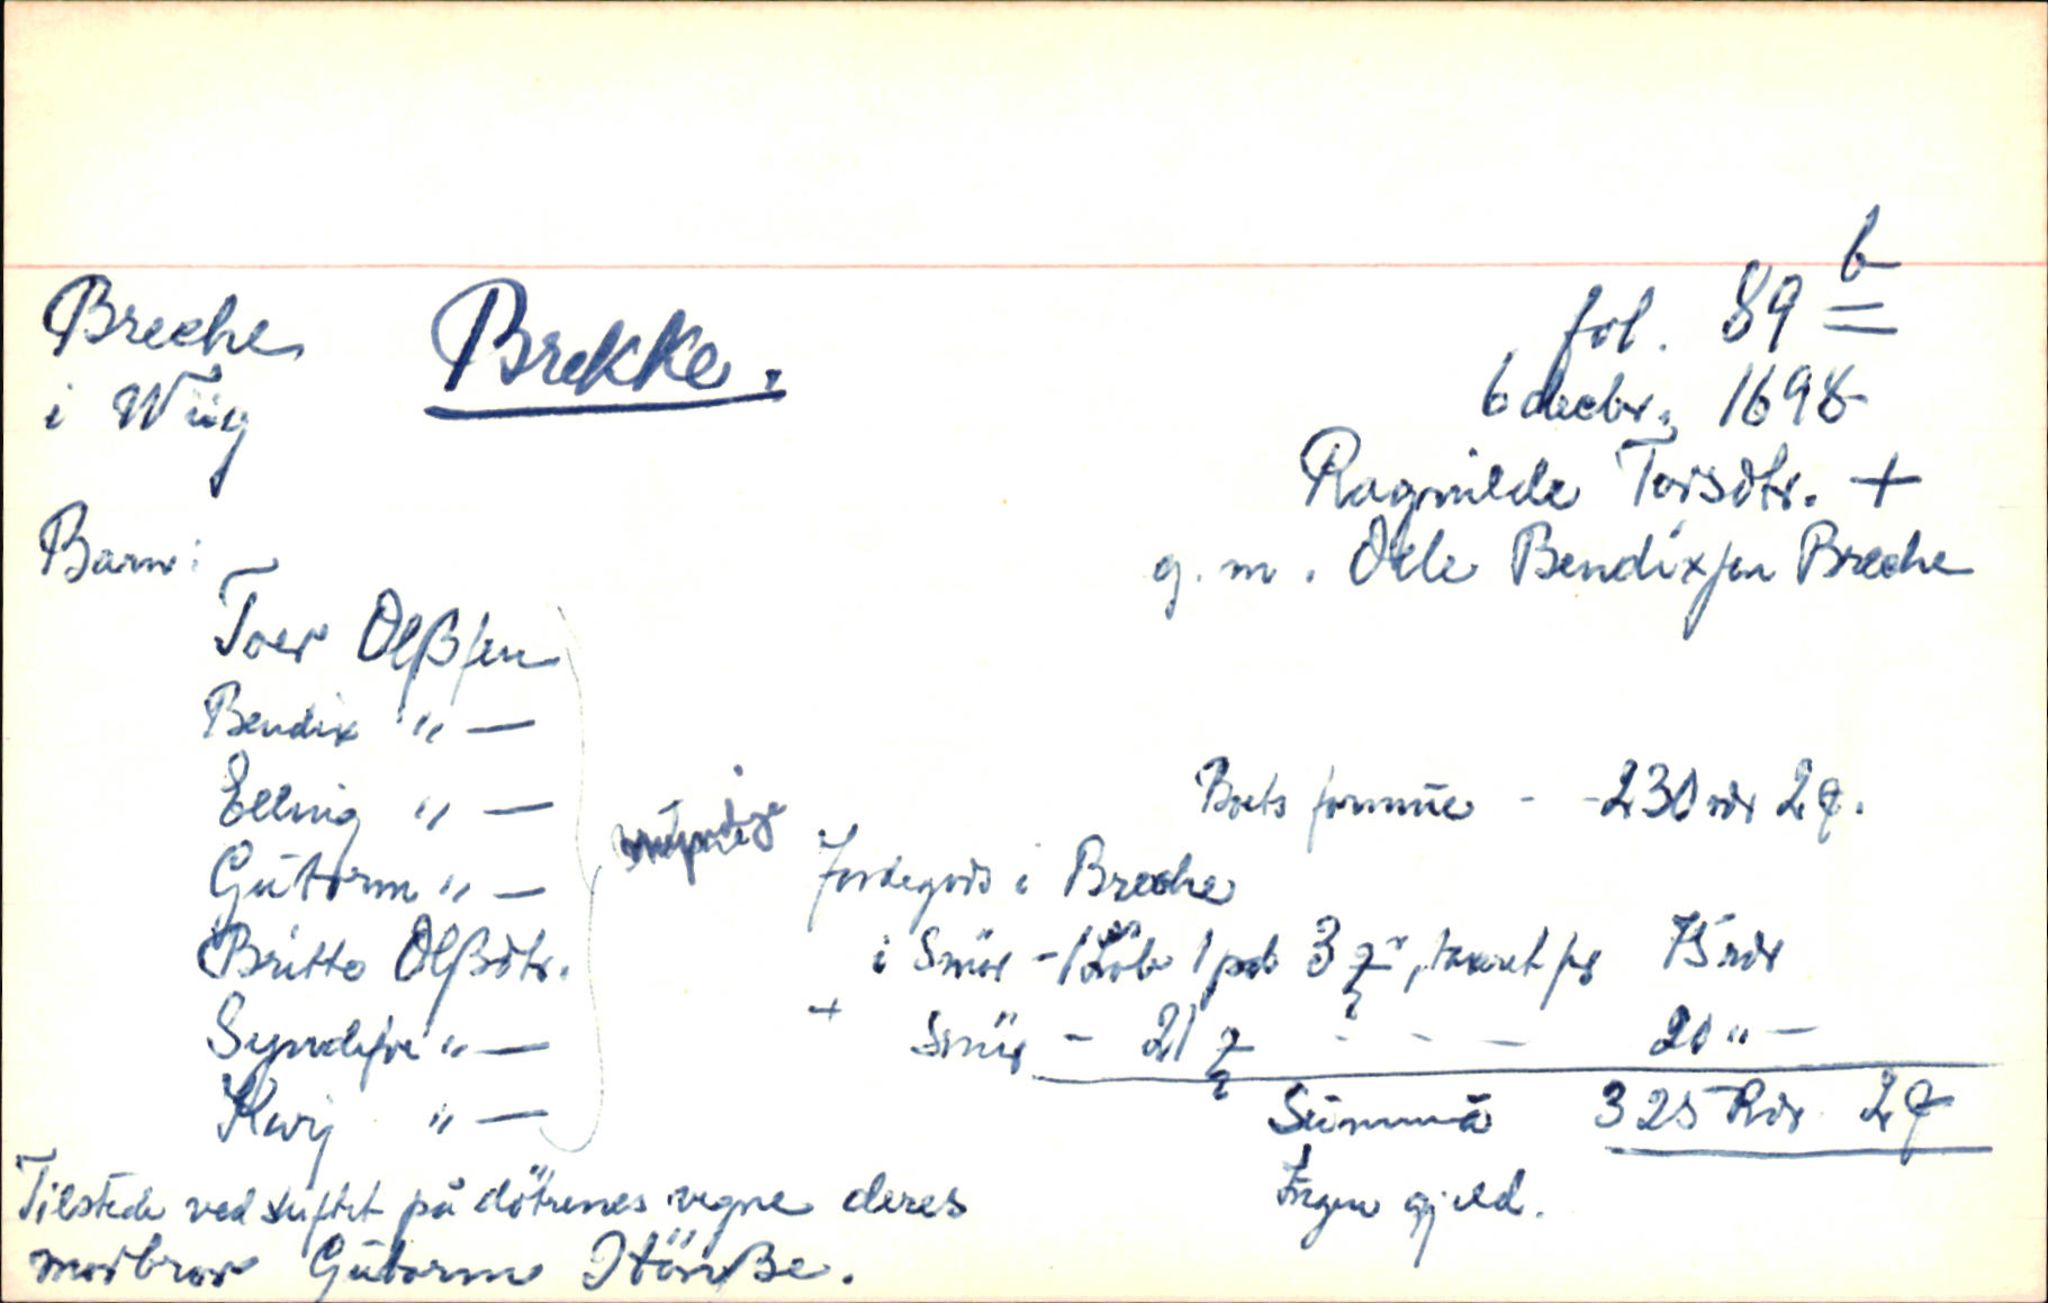 Breche
i Wiig
Brekke.
fol. 89 b
6 decbr. 1698
Ragnilde Torsdtr. +
g. m. Olle Bendixsen Breche
Barn:
Toer Olßsen
Bendix " —
Elling " —
Gutorm " —
Britte Olßdtr.
Syndføe " —
Kari " —
umyndige
Boets formue - - 230 rdr 2 q.
Jordegods i Breche
i Smör - 1 Löb 1 pd 3 , taxeret for 75 rdr
+ Smör - 21 - - - 20 " —
Summa 325 Rdr 2 q
Ingen gjeld.
Tilstede ved skiftet på döttrenes vegne deres
morbror Gutorm